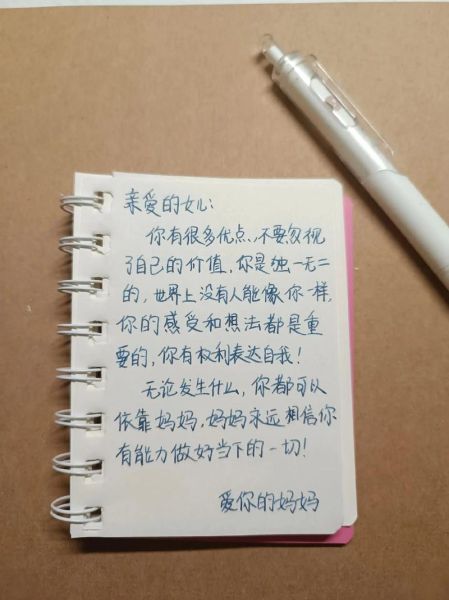 亲爱的女儿:
你有很多优点,不要忽视
了自己的价值,你是独一无二
的,世界上没有人能像你一样,
你的感受和想法都是重
要的,你有权利表达自我!
无论发生什么,你都可以
依靠妈妈,妈妈永远相信你
有能力做好当下的一切!
爱你的妈妈